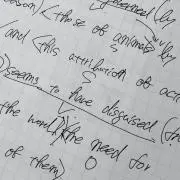 (by
reason) (those of animals) (by
and (this attribution of act
seems to have disguised (
the world) (the need for
of them)